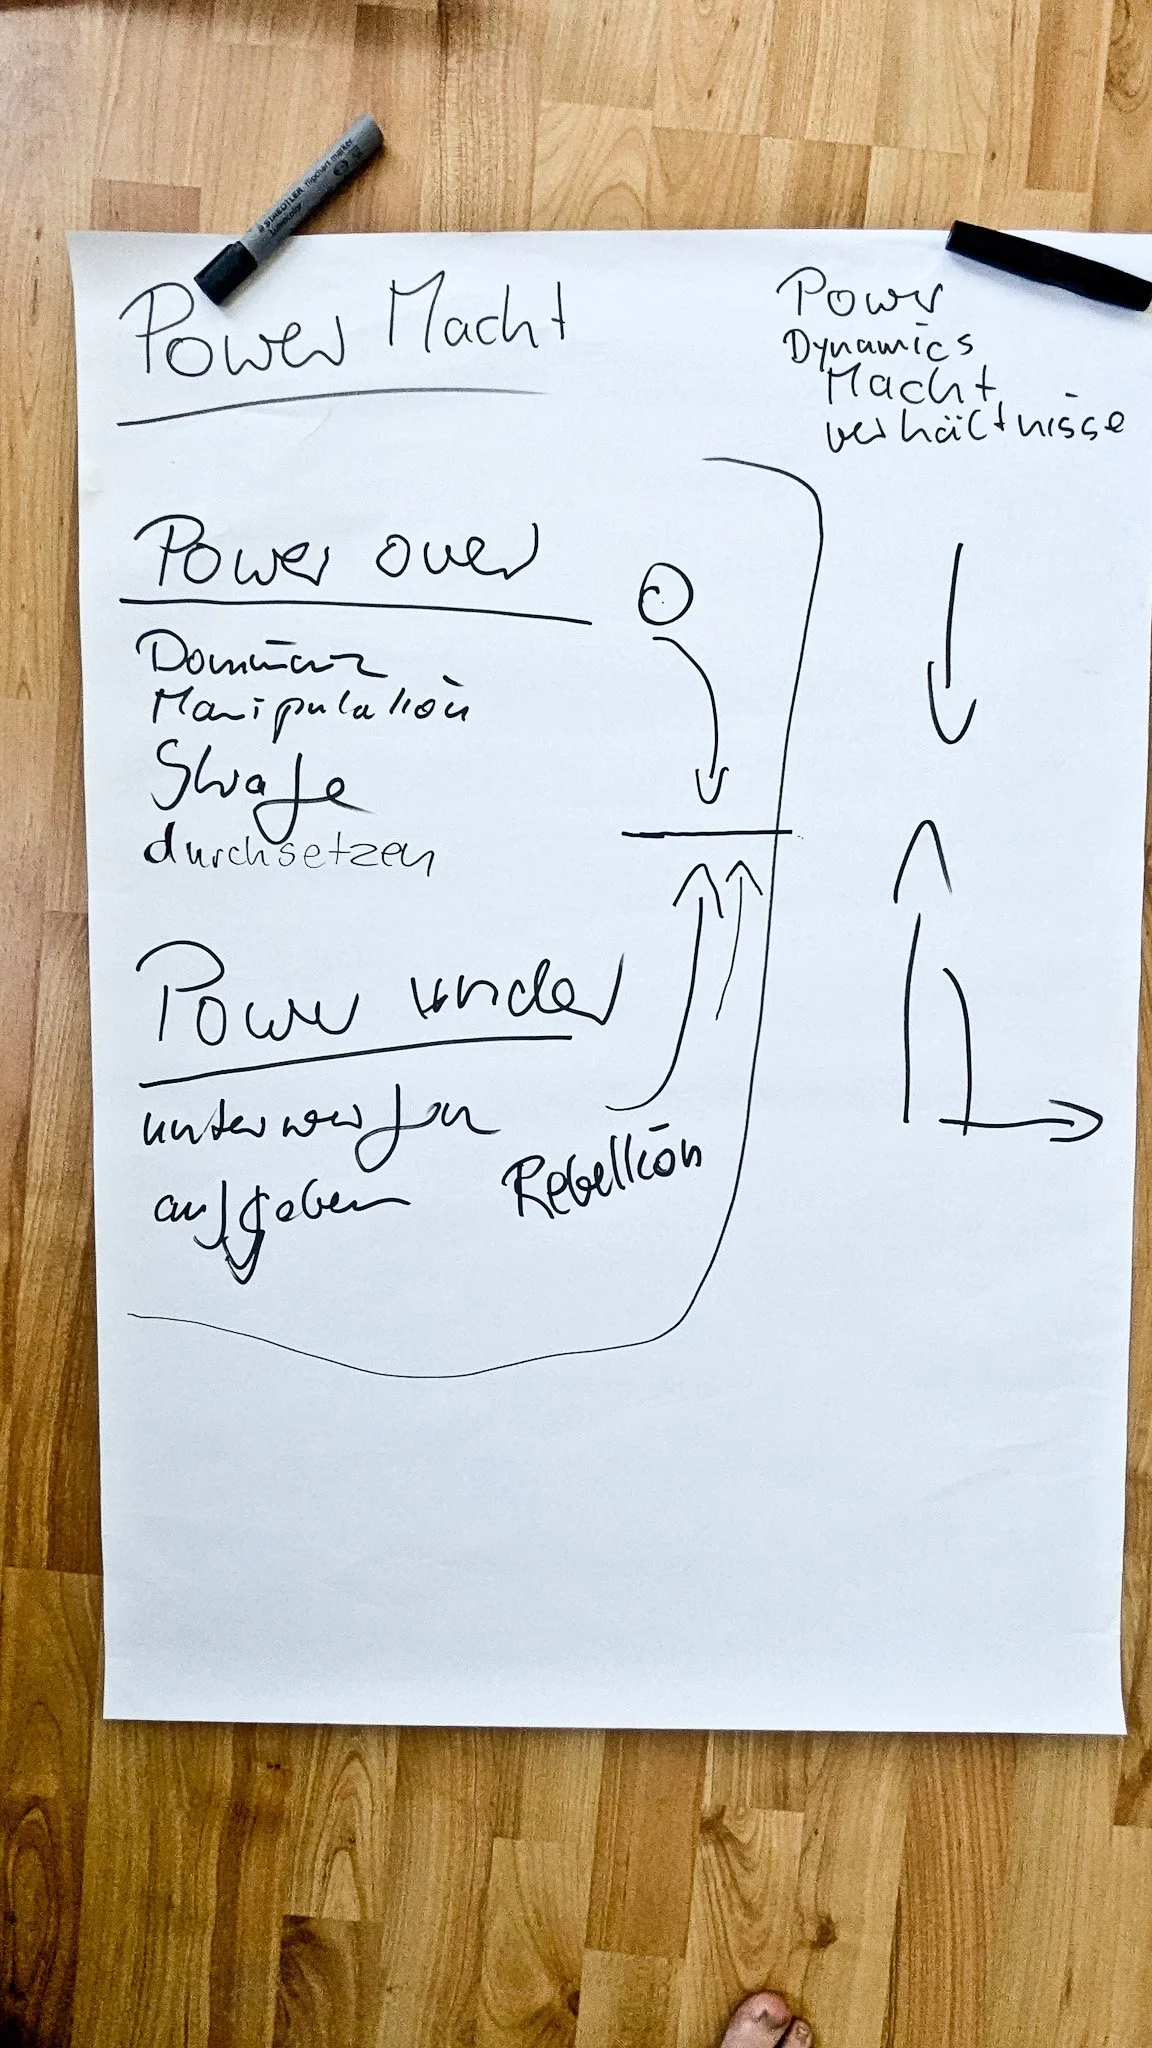 STAEDTLER flipchart marker
Power Macht
Power
Dynamics
Macht
verhältnisse
Power over
Dominanz
Manipulation
Strafe
durchsetzen
Power under
unterwerfen
aufgeben
Rebellion